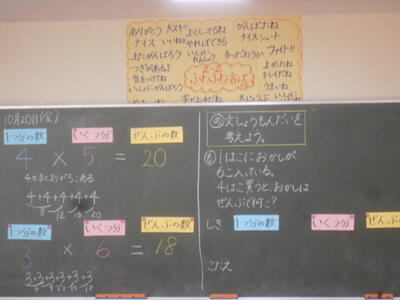 ありがとう 大スキ よくしてるね がんばったね
ナイス いいね!! やればできる ナイスシュート
またがんばろう いっしょにやろう まってたおうか ファイト!!
つぎがあるよ よかったね
気をつけてね 2-2 ふわふわ言ば キレイだね
いっしょにがんばろう うまいね
10月20日(金)
1つ分の数 いくつ分 ぜんぶの数
4 × 5 = 20
4のまとまりが5こある
4+4+4+4+4
8 12 16 20
1つ分の数 いくつ分 ぜんぶの数
3 × 6 = 18
3+3+3+3+3+3
6 9 12 15 18
め 文しょうもんだいを
考えよう。
も 1はこにおかしが
6こ入っている。
4はこ買うと、おかしは
ぜんぶで何こ?
しき 1つ分の数 いくつ分 ぜんぶの
こたえ